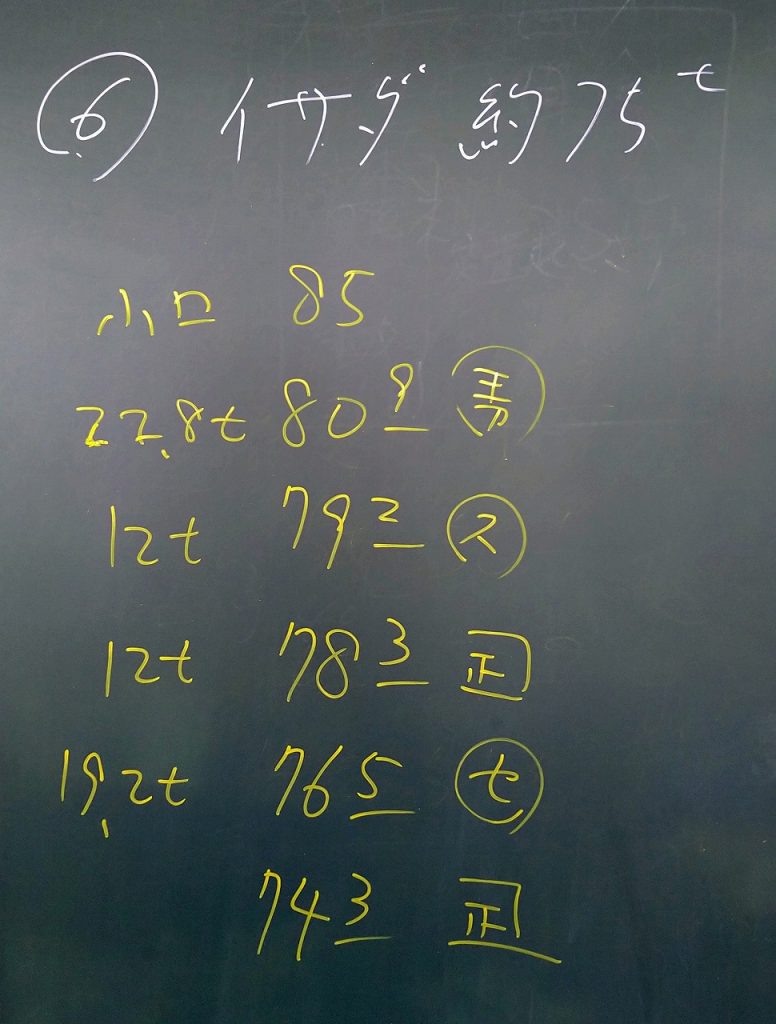 ⑥ イサダ 約75t
小口 85
22.8t 80 9
12t 79 2 ス
12t 78 3 正
19.2t 76 5 セ
74 3 正